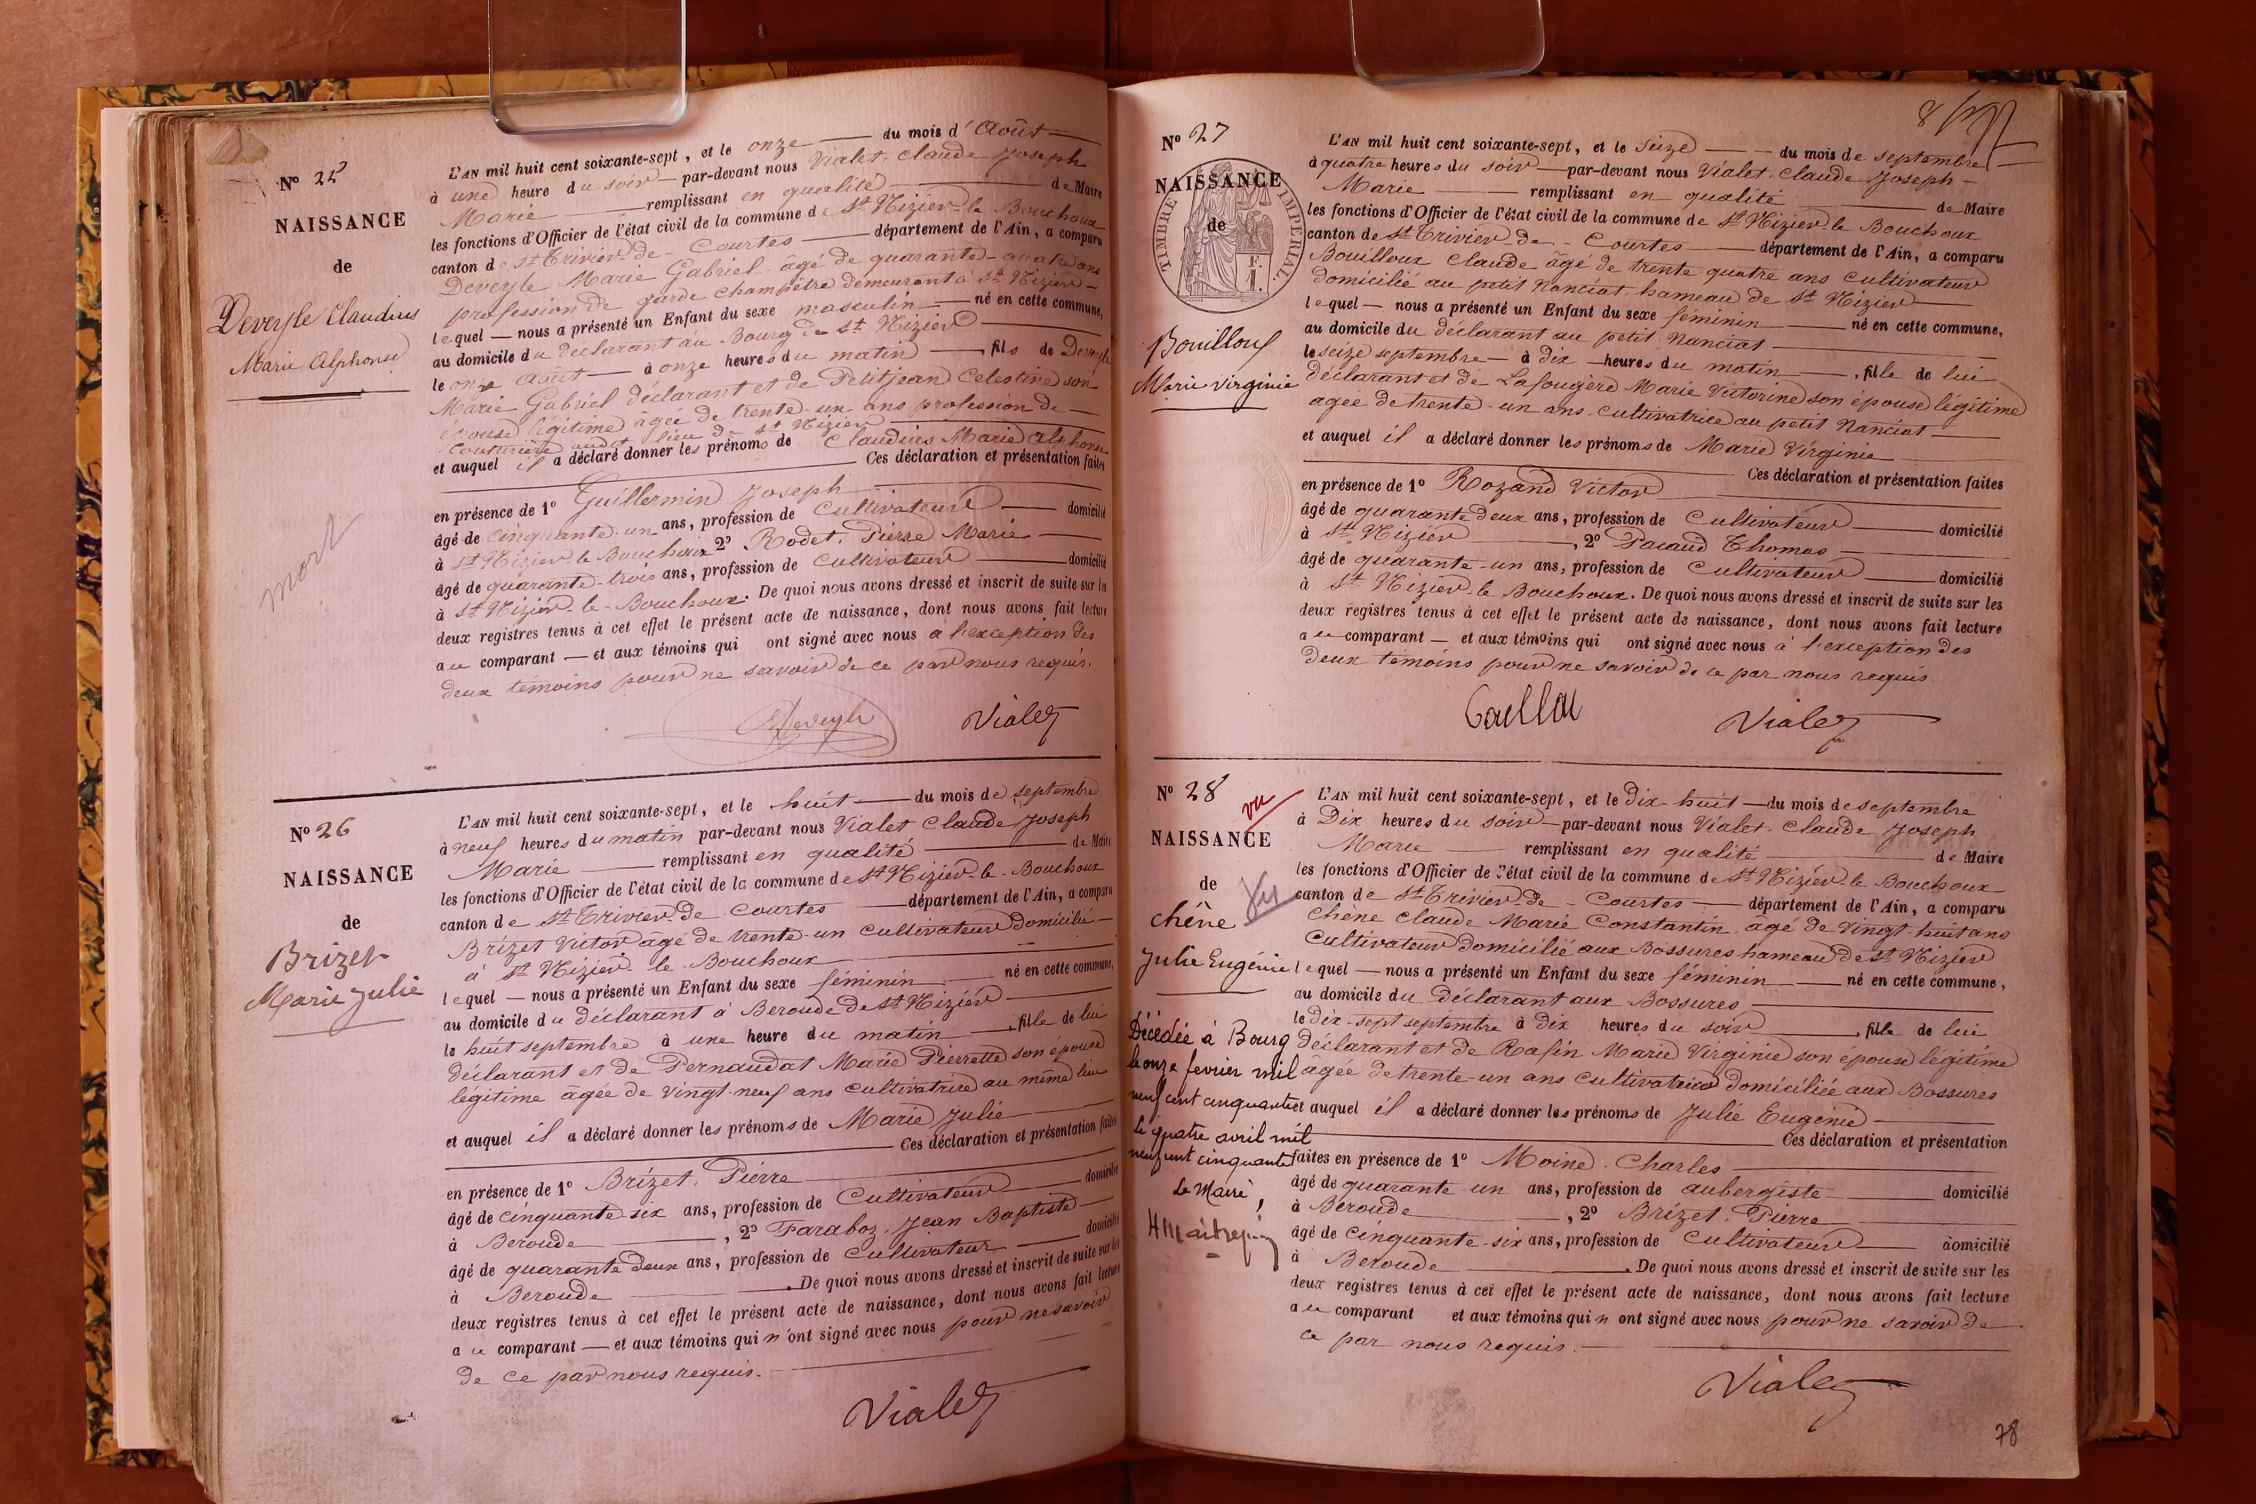 N° 25
NAISSANCE
de
Deveyle Claudius
Marie Alphonse
mort
L'AN mil huit cent soixante-sept, et le onze du mois d'Août
à une heure du soir par-devant nous Vialet Claude Joseph
Marie remplissant en qualité de Maire
les fonctions d'Officier de l'état civil de la commune de St Nizier-le-Bouchoux
canton de St Trivier-de-Courtes département de l'Ain, a comparu
Deveyle Marie Gabriel âgé de quarante-quatre ans
profession de garde champêtre demeurant à St Nizier
lequel nous a présenté un Enfant du sexe masculin né en cette commune,
au domicile du déclarant au Bourg de St Nizier
le onze Août à onze heures du matin, fils de Deveyle
Marie Gabriel déclarant et de Petitjean Celestine son
épouse légitime âgée de trente-un ans profession de
couturière audit lieu de St Nizier
et auquel il a déclaré donner les prénoms de Claudius Marie Alphonse
Ces déclaration et présentation faites
en présence de 1° Guillermin Joseph
âgé de cinquante-un ans, profession de Cultivateur domicilié
à St Nizier-le-Bouchoux 2° Rodet Pierre Marie
âgé de quarante-trois ans, profession de Cultivateur domicilié
à St Nizier-le-Bouchoux. De quoi nous avons dressé et inscrit de suite sur les
deux registres tenus à cet effet le présent acte de naissance, dont nous avons fait lecture
au comparant et aux témoins qui ont signé avec nous à l'exception des
deux témoins pour ne savoir de ce par nous requis.
Deveyle Vialet
N° 26
NAISSANCE
de
Brizet
Marie Julie
L'AN mil huit cent soixante-sept, et le huit du mois de septembre
à neuf heures du matin par-devant nous Vialet Claude Joseph
Marie remplissant en qualité de Maire
les fonctions d'Officier de l'état civil de la commune de St Nizier-le-Bouchoux
canton de St Trivier-de-Courtes département de l'Ain, a comparu
Brizet Victor âgé de trente-un cultivateur domicilié
à St Nizier le Bouchoux
lequel nous a présenté un Enfant du sexe féminin né en cette commune,
au domicile du déclarant à Beroude de St Nizier
le huit septembre à une heure du matin, fille de lui
déclarant et de Pernaudat Marie Pierrette son épouse
légitime âgée de vingt-neuf ans cultivatrice au même lieu
et auquel il a déclaré donner les prénoms de Marie Julie
Ces déclaration et présentation faites
en présence de 1° Brizet Pierre
âgé de cinquante-six ans, profession de Cultivateur domicilié
à Beroude, 2° Faraboz Jean Baptiste
âgé de quarante deux ans, profession de cultivateur domicilié
à Beroude. De quoi nous avons dressé et inscrit de suite sur les
deux registres tenus à cet effet le présent acte de naissance, dont nous avons fait lecture
au comparant et aux témoins qui n'ont signé avec nous pour ne savoir
de ce par nous requis.
Vialet
N° 27
NAISSANCE
de
TIMBRE IMPÉRIAL
Bouilloux
Marie Virginie
L'AN mil huit cent soixante-sept, et le seize du mois de septembre
à quatre heures du soir par-devant nous Vialet Claude Joseph
Marie remplissant en qualité de Maire
les fonctions d'Officier de l'état civil de la commune de St Nizier-le Bouchoux
canton de St Trivier-de-Courtes département de l'Ain, a comparu
Bouilloux Claude âgé de trente quatre ans cultivateur
domicilié au petit Nanciat hameau de St Nizier
lequel nous a présenté un Enfant du sexe féminin né en cette commune,
au domicile du déclarant au petit Nanciat
le seize septembre à dix heures du matin, fille de lui
déclarant et de Lafougère Marie Victorine son épouse légitime
agée de trente-un ans cultivatrice au petit Nanciat
et auquel il a déclaré donner les prénoms de Marie Virginie
Ces déclaration et présentation faites
en présence de 1° Rozand Victor
âgé de quarante deux ans, profession de Cultivateur domicilié
à St Nizier, 2° Pacaud Thomas
âgé de quarante-un ans, profession de Cultivateur domicilié
à St Nizier-le Bouchoux. De quoi nous avons dressé et inscrit de suite sur les
deux registres tenus à cet effet le présent acte de naissance, dont nous avons fait lecture
au comparant et aux témoins qui ont signé avec nous à l'exception des
deux témoins pour ne savoir de ce par nous requis.
Vialet
N° 28
vu
NAISSANCE
de
Chêne
Julie Eugénie
Décédée à Bourg
le onze février mil
neuf cent cinquante
Le quatre avril mil
neuf cent cinquante
Le Maire,
L'AN mil huit cent soixante-sept, et le dix-huit du mois de septembre
à Dix heures du soir par-devant nous Vialet Claude Joseph
Marie remplissant en qualité de Maire
les fonctions d'Officier de l'état civil de la commune de St Nizier-le Bouchoux
canton de St Trivier-de-Courtes département de l'Ain, a comparu
Chêne Claude Marie Constantin âgé de vingt-huit ans
Cultivateur domicilié aux Bossures hameau de St Nizier
lequel nous a présenté un Enfant du sexe féminin né en cette commune,
au domicile du Déclarant aux Bossures
le dix-sept septembre à dix heures du soir, fille de lui
déclarant et de Rafin Marie Virginie son épouse légitime
âgée de trente-un ans cultivatrice domiciliée aux Bossures
et auquel il a déclaré donner les prénoms de Julie Eugénie
Ces déclaration et présentation
faites en présence de 1° Moine Charles
âgé de quarante-un ans, profession de aubergiste domicilié
à Beroude, 2° Brizet Pierre
âgé de cinquante-six ans, profession de Cultivateur domicilié
à Beroude. De quoi nous avons dressé et inscrit de suite sur les
deux registres tenus à cet effet le présent acte de naissance, dont nous avons fait lecture
au comparant et aux témoins qui n ont signé avec nous pour ne savoir de
ce par nous requis.
Vialet
78